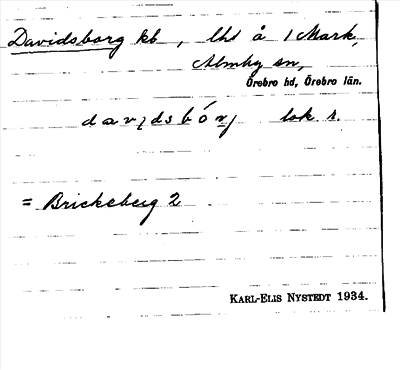 Davidsborg kb, lht å 1 Mark,
Almby sn,
Örebro hd, Örebro län.
lok. r.
= Brickeberg 2
KARL-ELIS NYSTEDT 1934.